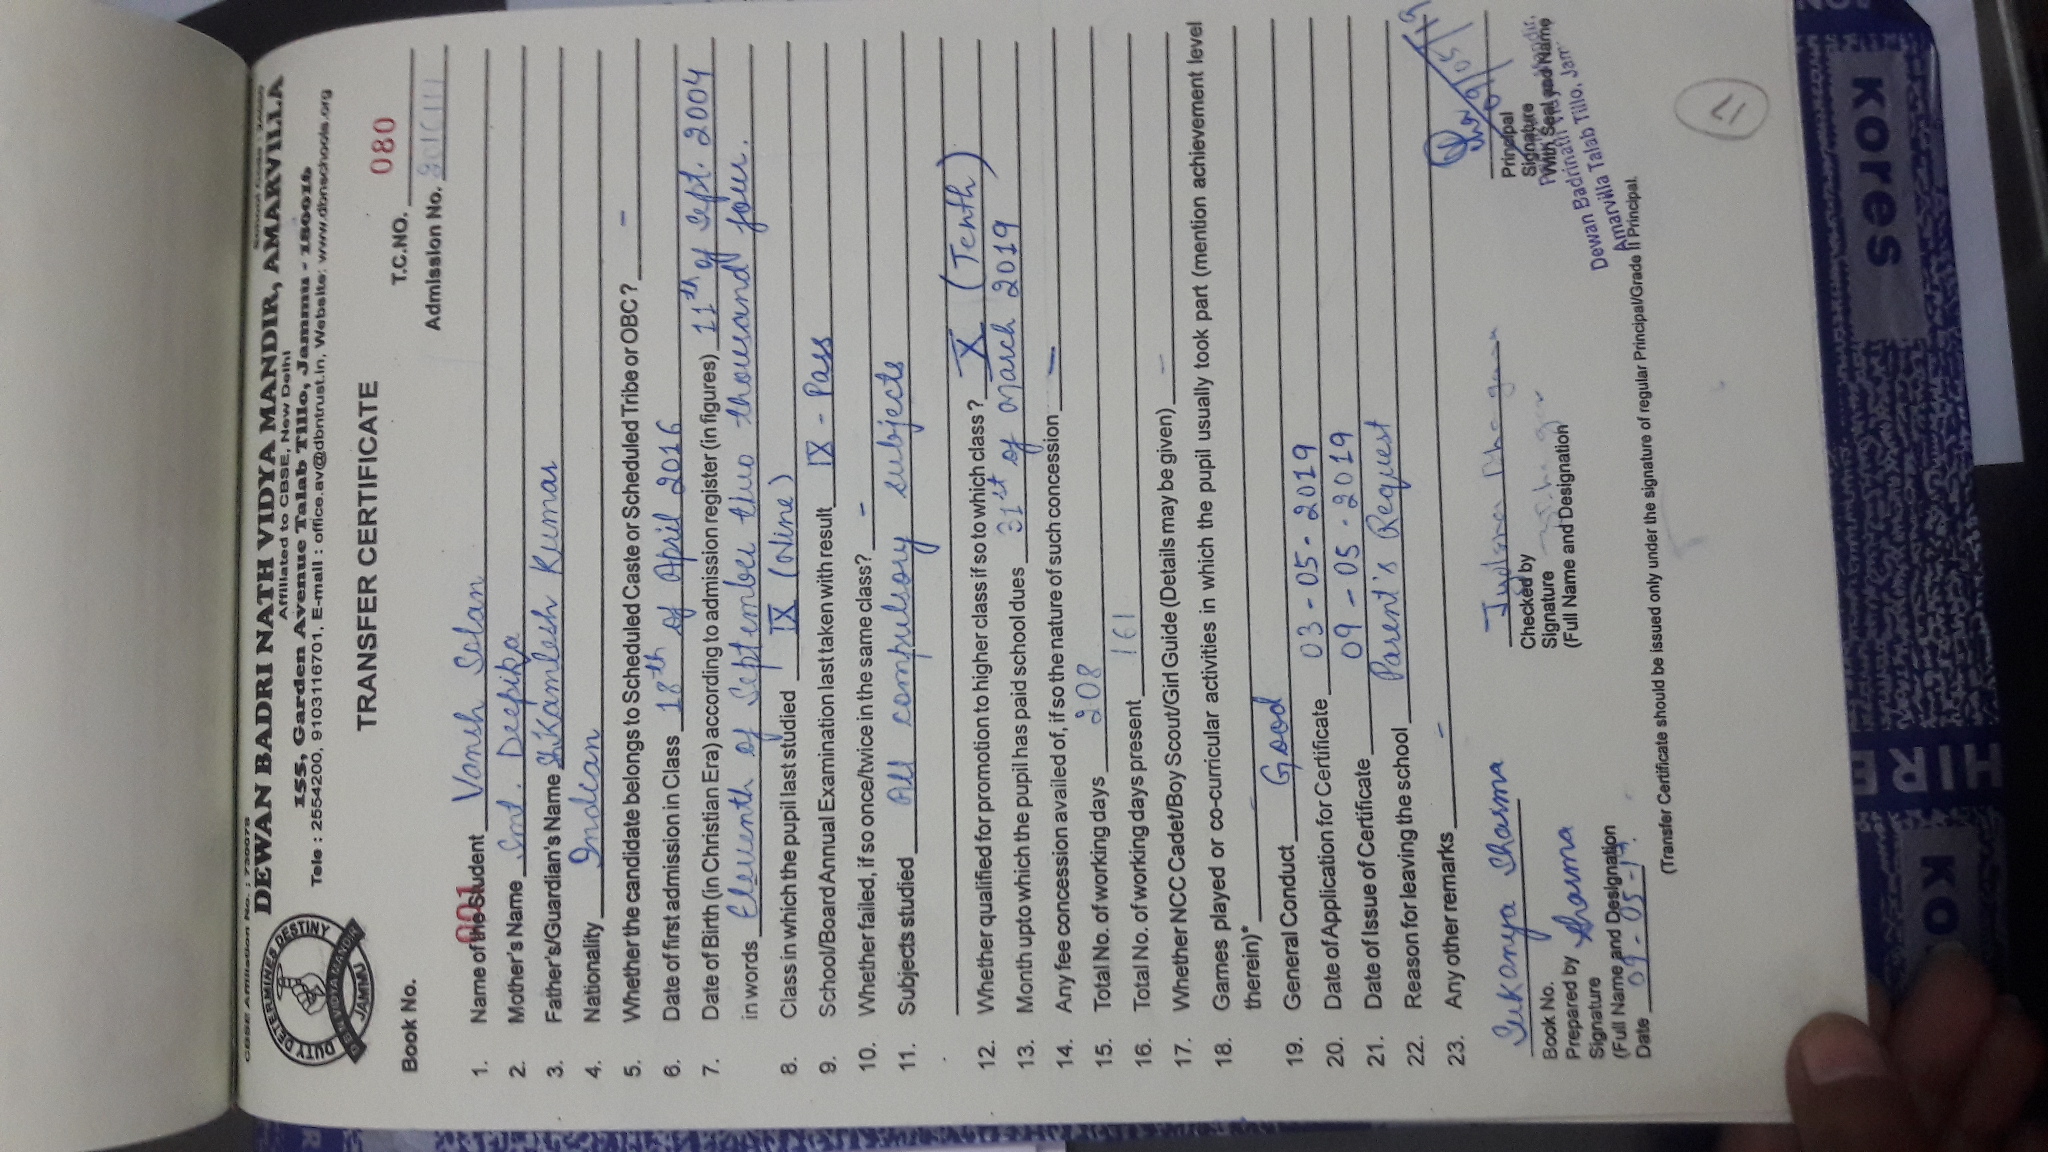 CBSE Affiliation No. : 730078
DEWAN BADRI NATH VIDYA MANDIR, AMARVILLA
Affiliated to CBSE, New Delhi
155, Garden Avenue Talab Tillo, Jammu - 180016
Tele : 2554200, 9103116701, E-mail : office.av@dbntrust.in, Website: www.dbnschools.org
DUTY DETERMINES DESTINY
D B N VIDYA MANDIR
JAMMU
TRANSFER CERTIFICATE
Book No. 001
T.C.NO. 080
Admission No.
1. Name of the Student Vansh Solan
2. Mother's Name Smt. Deepika
3. Father's/Guardian's Name Sh Kamlesh Kumar
4. Nationality Indian
5. Whether the candidate belongs to Scheduled Caste or Scheduled Tribe or OBC? -
6. Date of first admission in Class 18th of April 2016
7. Date of Birth (in Christian Era) according to admission register (in figures) 11th of Sept. 2004
in words Eleventh of September two thousand four.
8. Class in which the pupil last studied IX (Nine)
9. School/Board Annual Examination last taken with result IX - Pass
10. Whether failed, if so once/twice in the same class? -
11. Subjects studied All compulsory subjects
12. Whether qualified for promotion to higher class if so to which class? X (Tenth)
13. Month upto which the pupil has paid school dues 31st of March 2019
14. Any fee concession availed of, if so the nature of such concession -
15. Total No. of working days 208
16. Total No. of working days present 161
17. Whether NCC Cadet/Boy Scout/Girl Guide (Details may be given) -
18. Games played or co-curricular activities in which the pupil usually took part (mention achievement level
therein)* -
19. General Conduct Good
20. Date of Application for Certificate 03-05-2019
21. Date of Issue of Certificate 09-05-2019
22. Reason for leaving the school Parent's Request
23. Any other remarks -
Sukanya Sharma
Book No.
Prepared by Sharma
Signature
(Full Name and Designation
Date 09-05-19.
Checked by
Signature
(Full Name and Designation
Principal
Signature
With Seal and Name
Dewan Badrinath
Amarvilla Talab Tillo, Jam
(Transfer Certificate should be issued only under the signature of regular Principal/Grade II Principal.
11
Kores